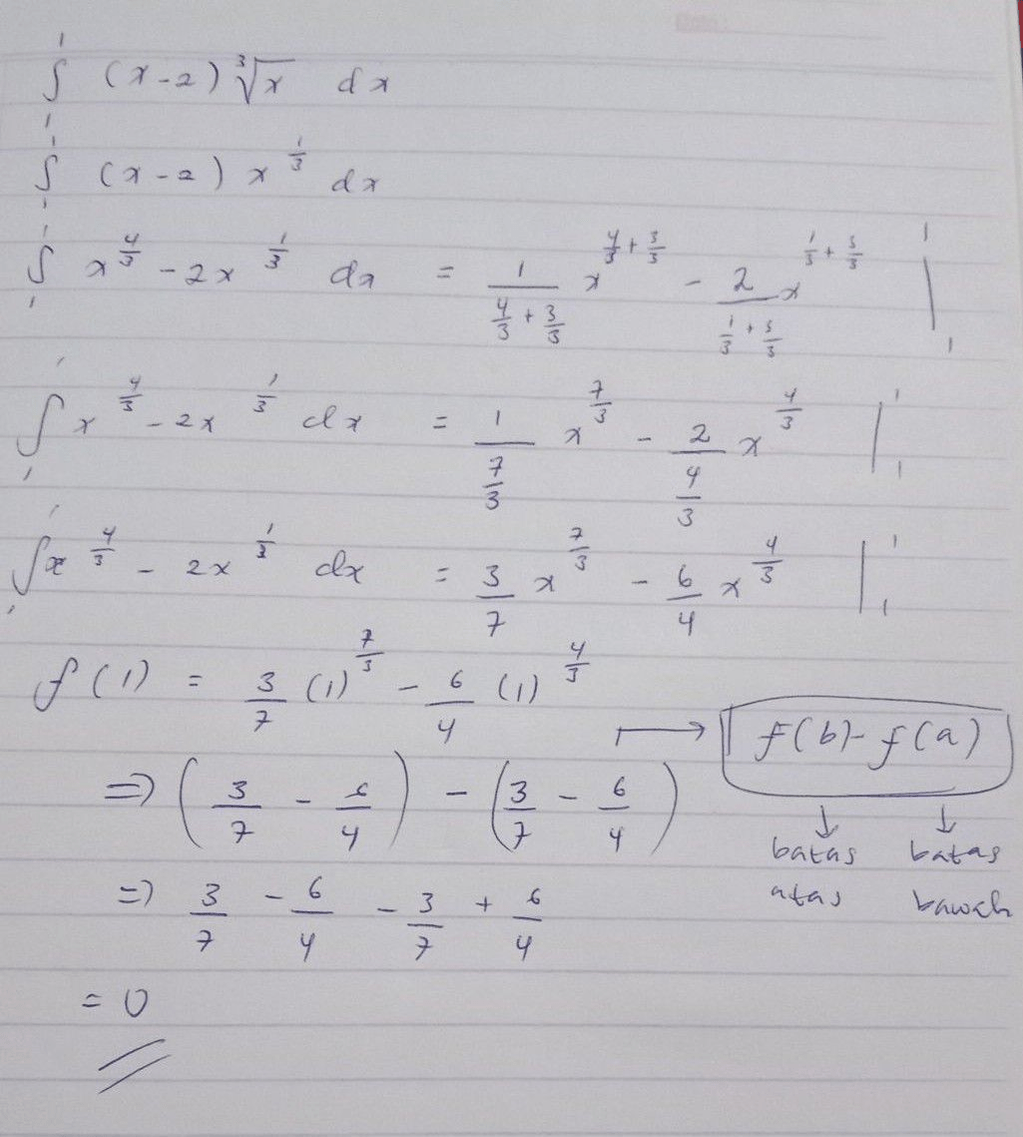 ∫₁¹ (x-2) ∛x dx
∫₁¹ (x-2) x^(1/3) dx
∫₁¹ x^(4/3) - 2x^(1/3) dx = 1/(4/3 + 3/3) x^(4/3 + 3/3) - 2/(1/3 + 3/3) x^(1/3 + 3/3) |₁¹
∫₁¹ x^(4/3) - 2x^(1/3) dx = 1/(7/3) x^(7/3) - 2/(4/3) x^(4/3) |₁¹
∫₁¹ x^(4/3) - 2x^(1/3) dx = 3/7 x^(7/3) - 6/4 x^(4/3) |₁¹
f(1) = 3/7 (1)^(7/3) - 6/4 (1)^(4/3)
→ f(b) - f(a)
⇒ (3/7 - 6/4) - (3/7 - 6/4)
↓ ↓
batas batas
atas bawah
⇒ 3/7 - 6/4 - 3/7 + 6/4
= 0